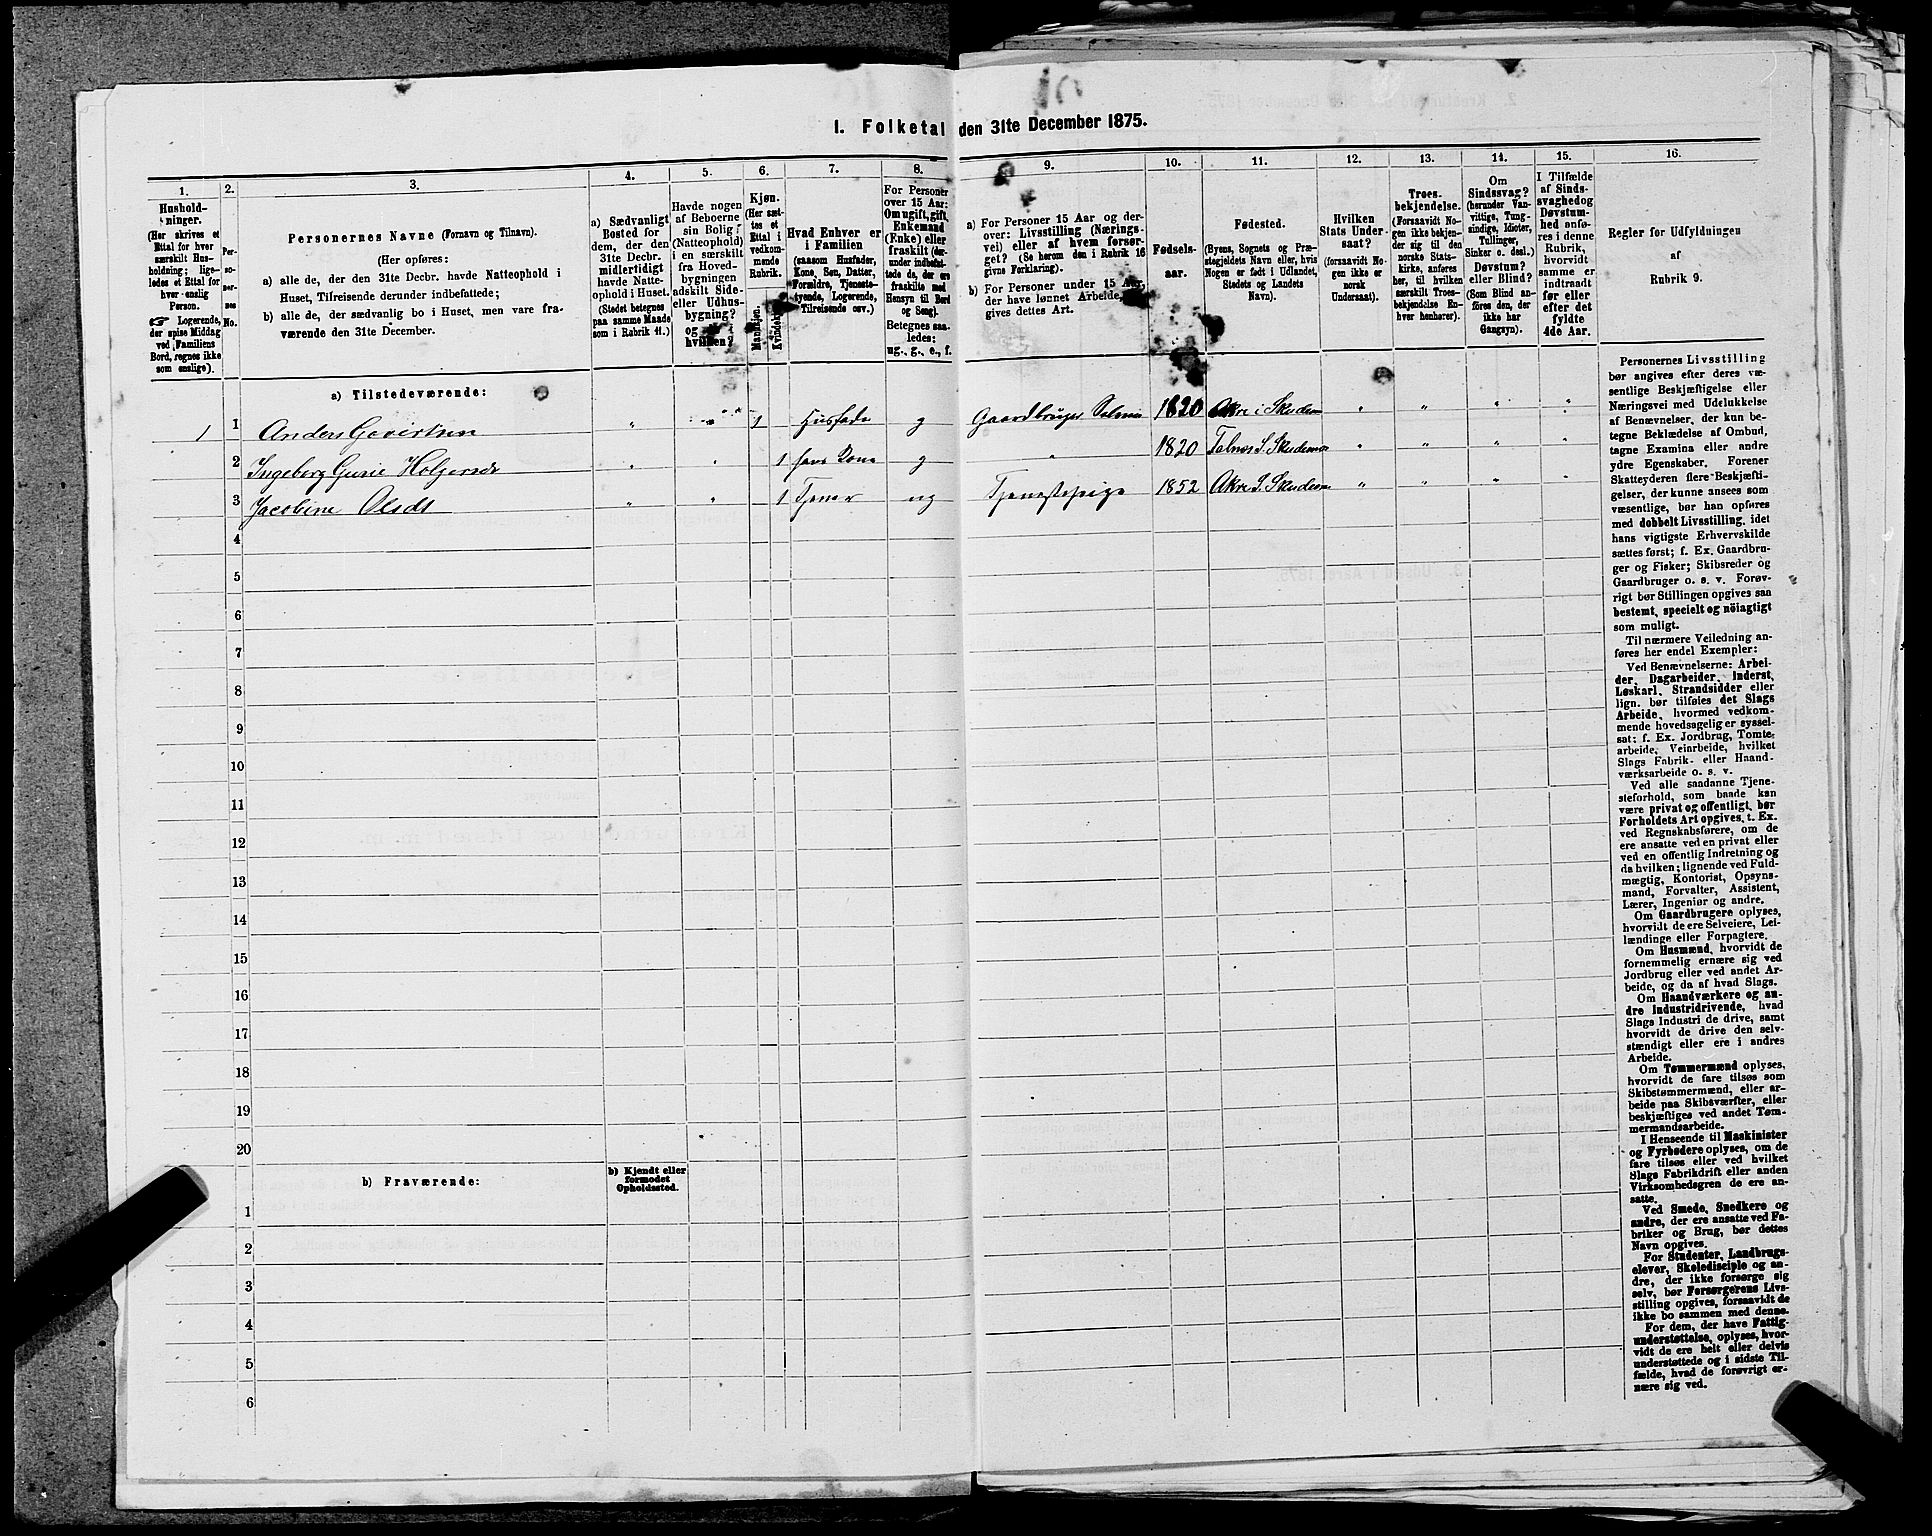 1. Folketal den 31te December 1875.
1. 2. 3. 4. 5. 6. 7. 8. 9. 10. 11. 12. 13. 14. 15. 16.
Hushold-
ninger.
(Her skrives et
Ettal for hver
særskilt Hus-
holdning; lige-
ledes et Ettal for
hver enslig
Person.
☞ Logerende,
der spise Middag
ved Familiens
Bord, regnes ikke
som enslige).
Per-
so-
ner-
nes
No.
Personernes Navne (Fornavn og Tilnavn).
(Her opføres:
a) alle de, der den 31te Decbr. havde Natteophold i
Huset, Tilreisende derunder indbefattede;
b) alle de, der sædvanlig bo i Huset, men vare fra-
værende den 31te December.
a) Sædvanligt
Bosted for
dem, der den
31te Decbr.
midlertidigt
havde Natte-
ophold i Huset.
(Stedet betegnes
paa samme Maade
som i Rubrik 11.)
Havde nogen
af Beboerne
sin Bolig
(Natteophold)
i en særskilt
fra Hoved-
bygningen
adskilt Side-
eller Udhus-
bygning?
og i
hvilken?
Kjøn.
(Her sæt-
tes et
Ettal i
vedkom-
mende
Rubrik.
Mandkjøn.
Kvindekjøn.
Hvad Enhver er
i Familien
(saasom Husfader,
Kone, Søn, Datter,
Forældre, Tjeneste-
tyende, Logerende,
Tilreisende osv.)
For Personer
over 15 Aar:
Om ugift, gift,
Enkemand
(Enke) eller
fraskilt (der-
under indbefat-
tede de, der ere
fraskilte med
Hensyn til Bord
og Seng).
Betegnes saa-
ledes:
ug., g., e., f.
a) For Personer 15 Aar og der-
over: Livsstilling (Nærings-
vei) eller af hvem forsør-
get? (Se herom den i Rubrik 16
givne Forklaring).
b) For Personer under 15 Aar,
der have lønnet Arbeide,
gives dettes Art.
Fødsels-
aar.
Fødested.
(Byens, Sognets og Præ-
stegjeldets Navn eller, hvis
Nogen er født i Udlandet,
Stedets og Landets
Navn).
Hvilken
Stats Under-
saat?
(forsaavidt No-
gen ikke er
norsk
Undersaat).
Troes-
bekjendelse.
(Forsaavidt No-
gen ikke bekjen-
der sig til den
norske Stats-
kirke, anføres
her, til hvilken
særskilt Troes-
bekjendelse En-
hver henhører).
Om
Sindssvag?
(herunder Van-
vittige, Tung-
sindige, Idioter,
Tullinger,
Sinker o. desl.)
Døvstum?
eller Blind?
(Som Blind an-
føres den, der
ikke har
Gangsyn).
I Tilfælde
af Sinds-
svaghed og
Døvstum-
hed anfø-
res i denne
Rubrik,
hvorvidt
samme er
indtraadt
før eller
efter det
fyldte
4de Aar.
Regler for Udfyldningen
af
Rubrik 9.
a) Tilstedeværende:
1 1 Anders Govertsen " " 1 Husfader g Gaardbruger Selveier 1820 Akre i Skudenes " " " "
2 Ingeborg Gurie Holgersdt " " 1 hans Kone g " 1820 Falnes S. Skudenes " " " "
3 Jacobine Olsdt " " 1 Tjener ug Tjenestepige 1852 Akre S. Skudenes " " " "
4
5
6
7
8
9
10
11
12
13
14
15
16
17
18
19
20
b) Fraværende:
b) Kjendt eller
formodet
Opholdssted.
1
2
3
4
5
6
Personernes Livsstilling
bør angives efter deres væ-
sentlige Beskjæftigelse eller
Næringsvei med Udelukkelse
af Benævnelser, der kun be-
tegne Beklædelse af Ombud,
tagne Examina eller andre
ydre Egenskaber. Forener
Skatteyderen flere Beskjæfti-
gelser, der kunne ansees som
væsentlige, bør han opføres
med dobbelt Livsstilling, idet
hans vigtigste Erhvervskilde
sættes først; f. Ex. Gaardbru-
ger og Fisker; Skibsreder og
Gaardbruger o. s. v. Forøv-
rigt bør Stillingen opgives saa
bestemt, specielt og nöiagtigt
som muligt.
Til nærmere Veiledning an-
føres her endel Exempler:
Ved Benævnelserne: Arbei-
der, Dagarbeider, Inderst,
Løskarl, Strandsidder eller
lign. bør tilføies det Slags
Arbeide, hvormed vedkom-
mende hovedsagelig er syssel-
sat; f. Ex. Jordbrug, Tomte-
arbeide, Veiarbeide, hvilket
Slags Fabrik- eller Haand-
værksarbeide o. s. v.
Ved alle saadanne Tjene-
steforhold, som baade kan
være privat og offentligt, bør
Forholdets Art opgives, t. Ex.
ved Regnskabsførere, om de
ere ansatte ved en privat eller
ved en offentlig Indretning og
da hvilken; lignende ved Fuld-
mægtig, Kontorist, Opsyns-
mand, Forvalter, Assistent,
Lærer, Ingeniør og andre.
Om Gaardbrugere oplyses,
hvorvidt de ere Selveiere, Lei-
lændinge eller Forpagtere.
Om Husmænd, hvorvidt de
fornemmelig ernære sig ved
Jordbrug eller ved andet Ar-
beide, og da af hvad Slags.
Om Haandværkere og an-
dre Industridrivende, hvad
Slags Industri de drive, samt
hvorvidt de drive den selv-
stændigt eller ere i andres
Arbeide.
Om Tømmermænd oplyses,
hvorvidt de fare tilsøs som
Skibstømmermænd, eller ar-
beide paa Skibsværfter, eller
beskjæftiges ved andet Tøm-
mermandsarbeide.
I Henseende til Maskinister
og Fyrbødere oplyses, om de
fare tilsøs eller ved hvilket
Slags Fabrikdrift eller anden
Virksomhedsgren de ere an-
satte.
Ved Smede, Snedkere og
andre, der ere ansatte ved Fa-
briker og Brug, bør dettes
Navn opgives.
For Studenter, Landbrugs-
elever, Skoledisciple og an-
dre, der ikke forsørge sig
selv, bør Forsørgerens Livs-
stilling opgives, forsaavidt de
ikke bo sammen med denne.
For dem, der have Fattig-
understøttelse, oplyses, hvor-
vidt de ere helt eller delvis
understøttede og i sidste Til-
fælde, hvad de forøvrigt er-
nære sig ved.